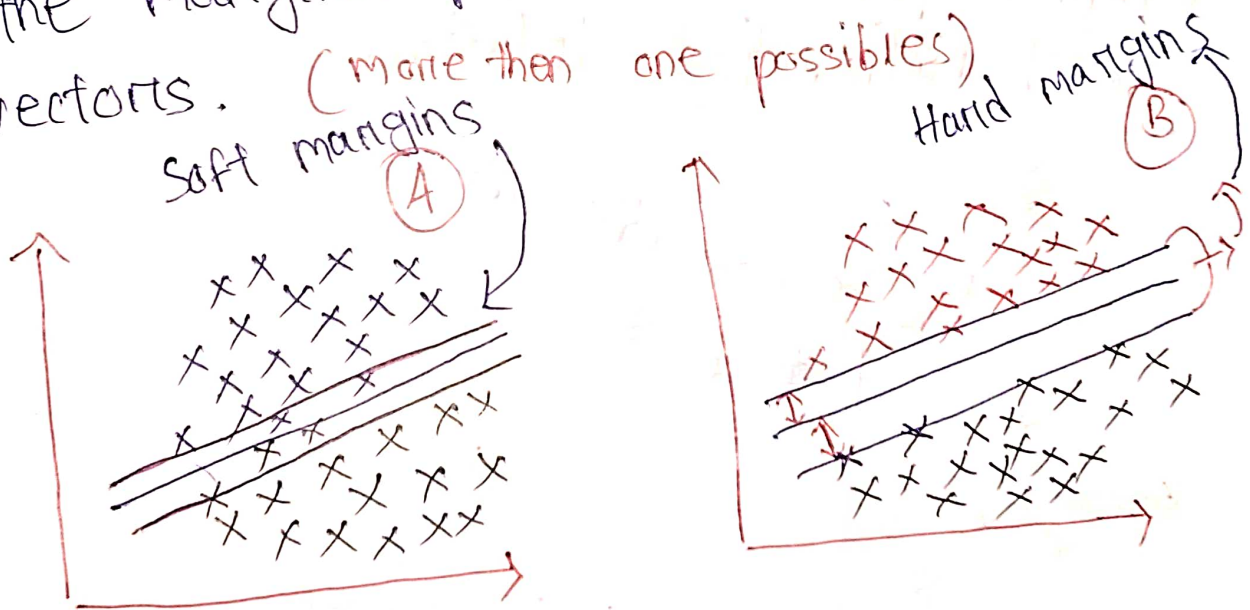 the
vectors.
(more then one possibles)
Soft margins
A
Hard margins
B